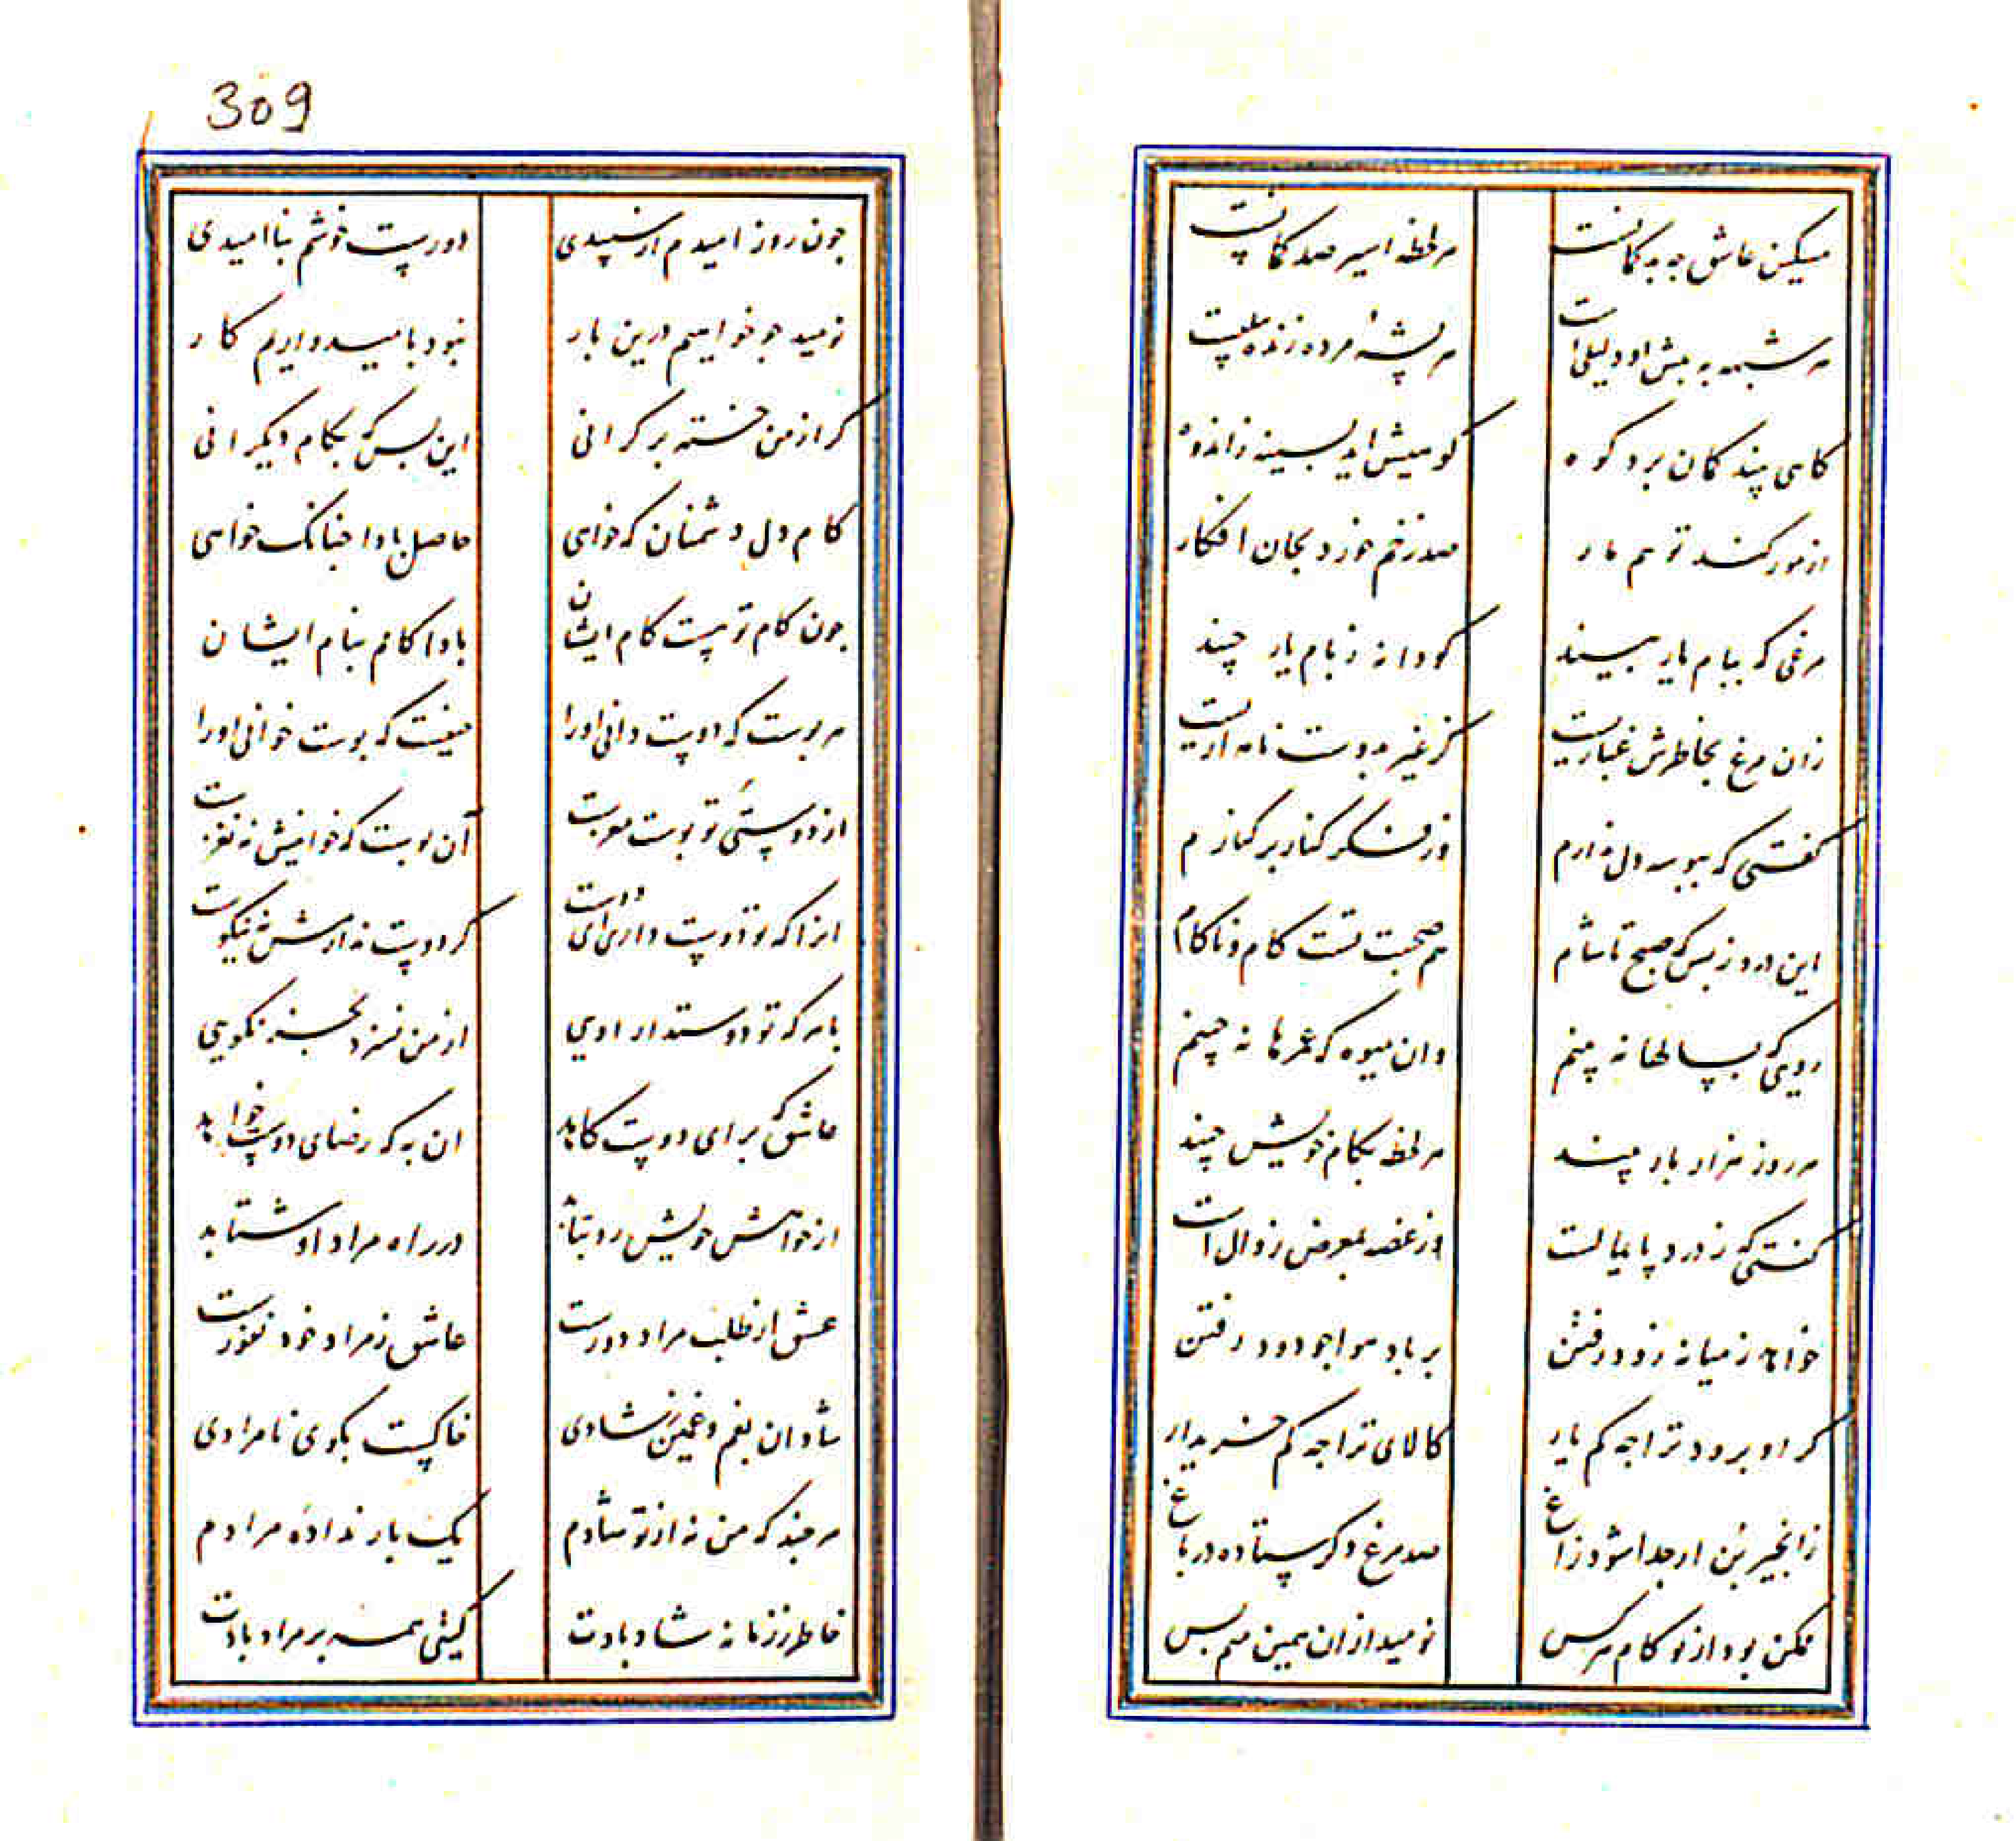 مسکین عاشق چه بدگمانست
هر لحظه اسیر صد گمانست
هر شبهه به پیش او دلیلی است
هر پشهٔ مرده زنده پیلیست
کاهی بیند گمان برد کوه
کوهیش آید بسینه ز اندوه
از مور کند توهم مار
صد زخم خورد بجان افکار
مرغی که ببام یار بیند
کو دانه ز بام یار چیند
زان مرغ بخاطرش غباریست
کز غیر بدوست نامه آریست
گفتی که ببوسه دل ندارم
وز فکر کنار بر کنارم
این درد نه بس که صبح تا شام
هم صحبت تست کام و ناکام
رویی که بسالها نه بینم
وان میوه که عمرها نه چینم
هر روز هزار بار بیند
هر لحظه بکام خویش چیند
گفتی که ز درد پایمالست
وز غصه بمعرض زوال است
خواهد ز میانه زود رفتن
بر باد هوا چو دود رفتن
گر او برود ترا چه کم یار
کالای ترا چه کم خریدار
ز انجیربن ار جدا شود زاغ
صد مرغ دگر ستاده در باغ
ممکن بود از تو کام هر کس
نومید از آن همین منم بس
309
چون روز امیدم ار سپیدی
دورست خوشم بناامیدی
نومید چو خواهیم درین بار
نبود بامیدواریم کار
گر از من خسته بر کرانی
این بس که بکام دیگرانی
کام دل دشمنان که خواهی
حاصل بادا چنانکه خواهی
چون کام تو هست کام ایشان
بادا کامم بنام ایشان
هر پوست که دوست دانی او را
حیفست که پوست خوانی او را
از دوستی تو پوست مغزست
آن پوست که خوانیش نه نغزست
آنرا که تو دوست داری ای دوست
گر دوست ندارمش نه نیکوست
با هر که تو دوستدار اویی
از من نسزد بجز نکویی
عاشق که برای دوست کاهد
آن به که رضای دوست خواهد
از خواهش خویش رو بتابد
در راه مراد او شتابد
عشق از طلب مراد دورست
عاشق ز مراد خود نفورست
شادان بغم و غمین ز شادی
خاکیست بکوی نامرادی
هر چند که من نه از تو شادم
یک بار نداده مرادم
خاطر ز زمانه شاد بادت
گیتی همه بر مراد بادت